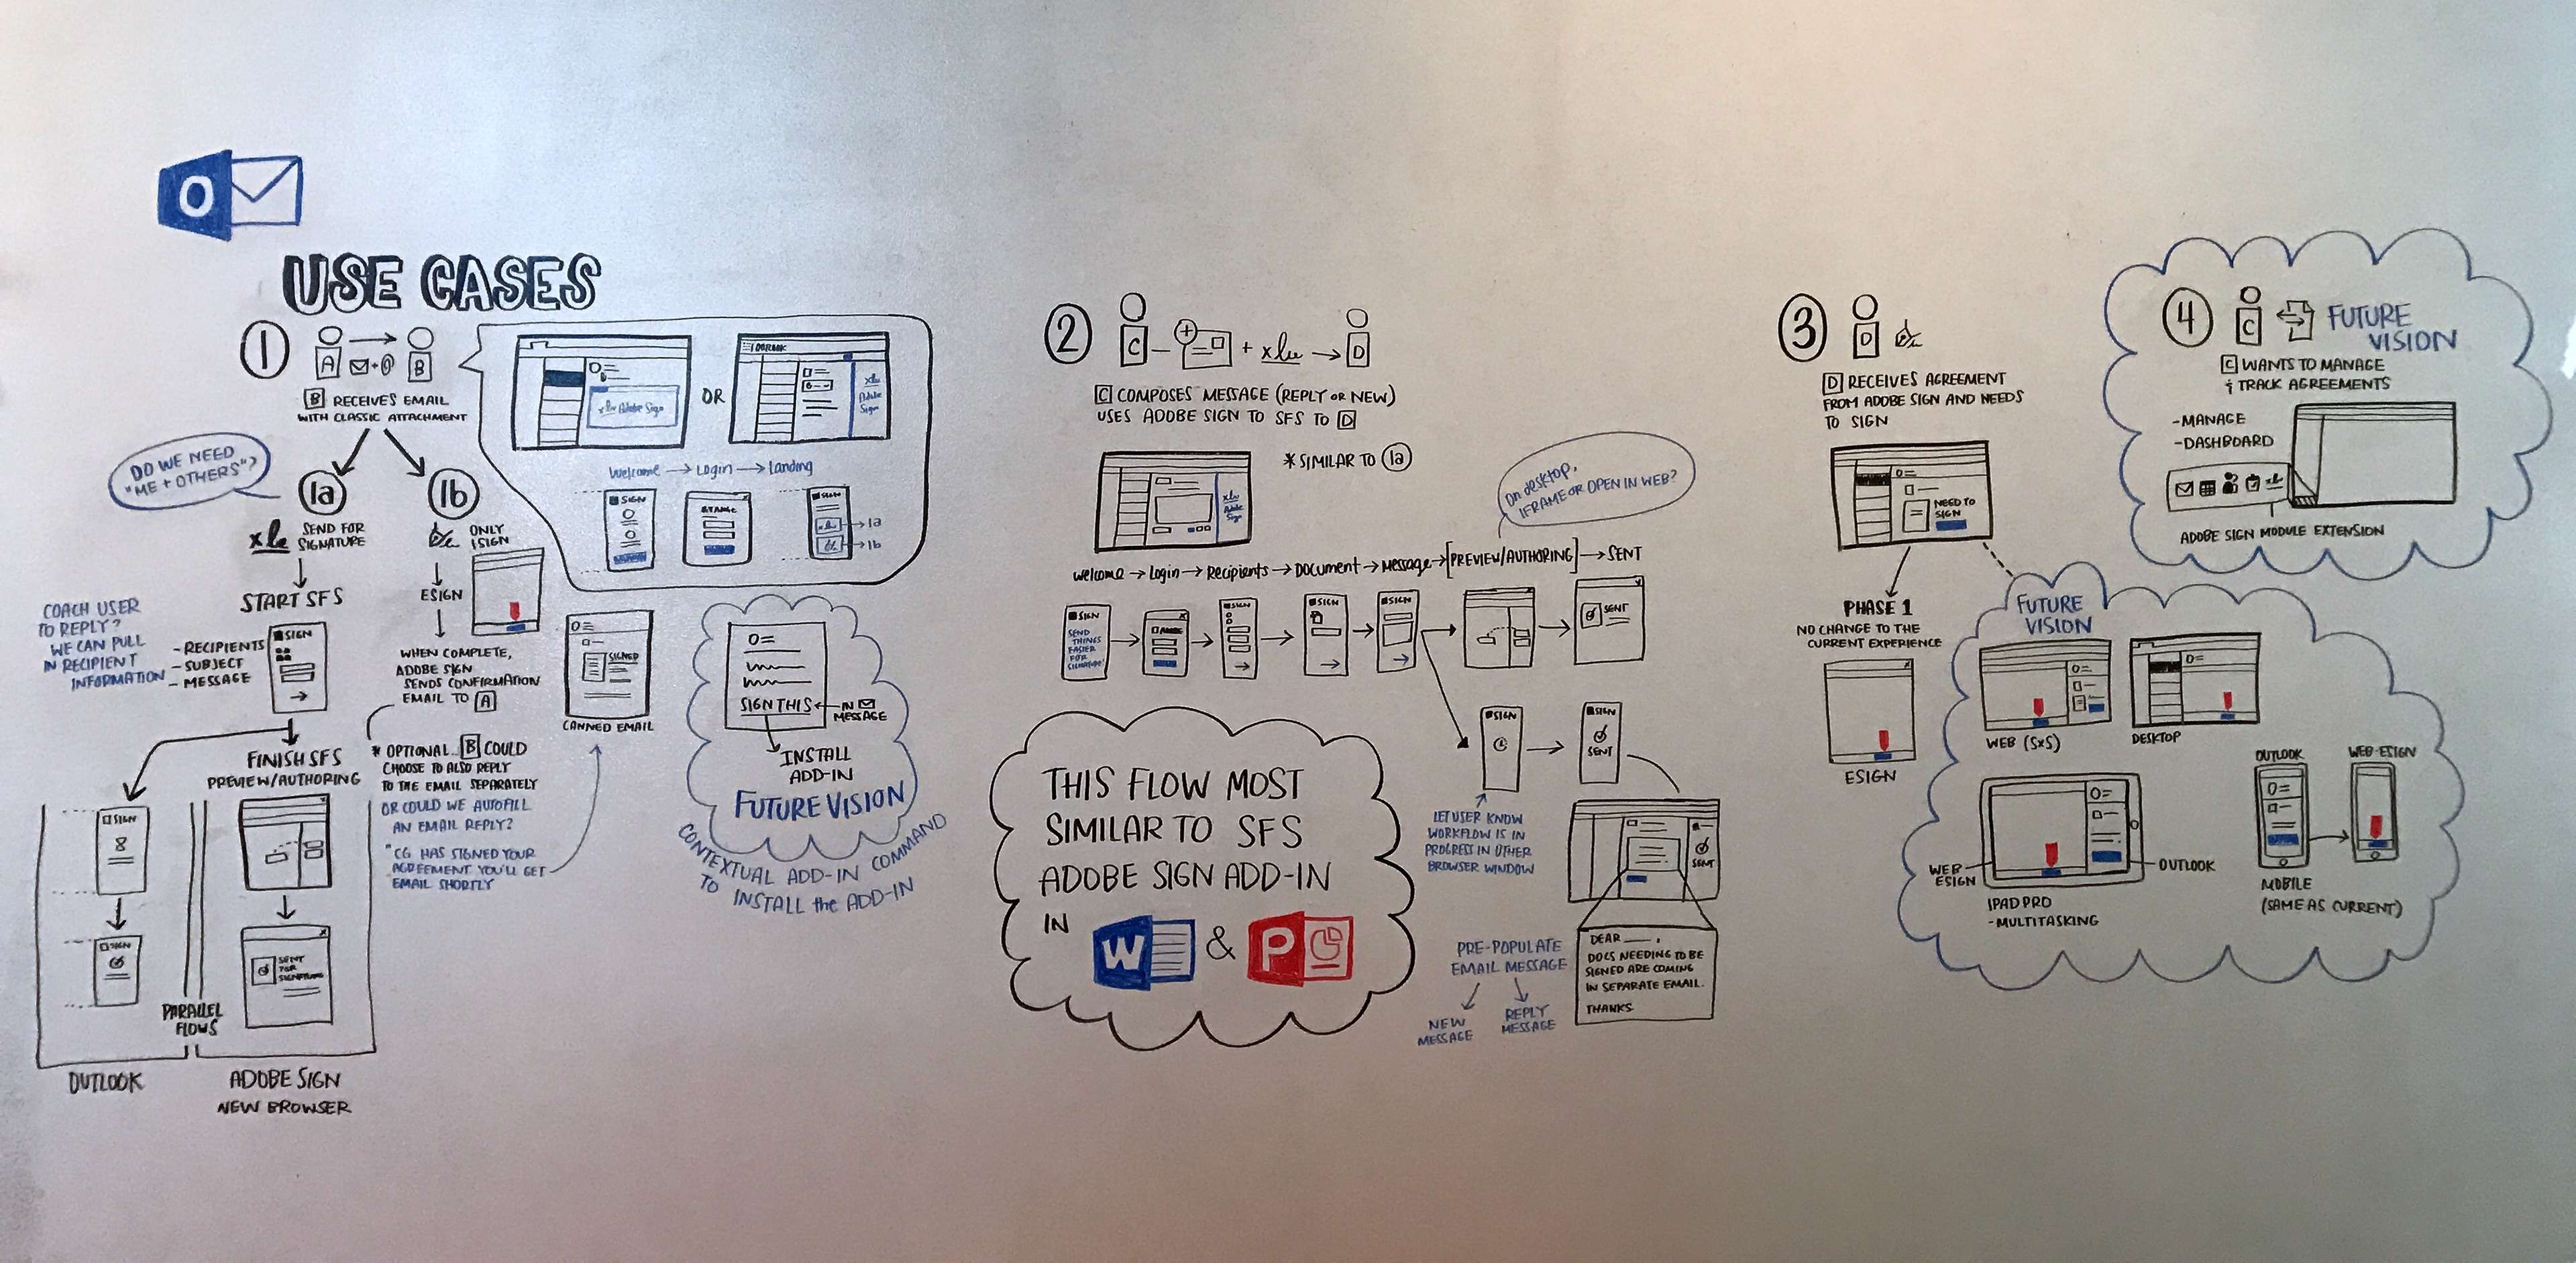 O
USE CASES
1
A
B
B RECEIVES EMAIL
WITH CLASSIC ATTACHMENT
DO WE NEED
"ME + OTHERS"?
1a
SEND FOR
SIGNATURE
START SFS
COACH USER
TO REPLY?
WE CAN PULL
IN RECIPIENT
INFORMATION
- RECIPIENTS
- SUBJECT
- MESSAGE
SIGN
FINISH SFS
PREVIEW/AUTHORING
SIGN
SIGN
SENT
FOR
SIGNATURE
PARALLEL
FLOWS
OUTLOOK
ADOBE SIGN
NEW BROWSER
1b
ONLY
I SIGN
ESIGN
WHEN COMPLETE,
ADOBE SIGN
SENDS CONFIRMATION
EMAIL TO A
* OPTIONAL.. B COULD
CHOOSE TO ALSO REPLY
TO THE EMAIL SEPARATELY
OR COULD WE AUTOFILL
AN EMAIL REPLY?
"CG HAS SIGNED YOUR
AGREEMENT YOU'LL GET
EMAIL SHORTLY
SIGNED
CANNED EMAIL
Adobe Sign
OR
Adobe
Sign
Welcome → Login → Landing
SIGN
SIGN
1a
1b
SIGN THIS
IN
MESSAGE
INSTALL
ADD-IN
FUTURE VISION
CONTEXTUAL ADD-IN COMMAND
TO INSTALL the ADD-IN
2
C
+
+
D
C COMPOSES MESSAGE (REPLY OR NEW)
USES ADOBE SIGN TO SFS TO D
* SIMILAR TO 1a
Adobe
Sign
On desktop,
IFRAME OR OPEN IN WEB?
Welcome → Login → Recipients → DOCUMENT → Message → [PREVIEW/AUTHORING] → SENT
SIGN
SEND
THINGS
EASIER
FOR
SIGNATURE!
SIGN
SIGN
SIGN
SENT
SIGN
SIGN
SENT
LET USER KNOW
WORKFLOW IS IN
PROGRESS IN OTHER
BROWSER WINDOW
SENT
THIS FLOW MOST
SIMILAR TO SFS
ADOBE SIGN ADD-IN
IN
W & P
PRE-POPULATE
EMAIL MESSAGE
NEW
MESSAGE
REPLY
MESSAGE
DEAR ___,
DOCS NEEDING TO BE
SIGNED ARE COMING
IN SEPARATE EMAIL.
THANKS.
3
D
D RECEIVES AGREEMENT
FROM ADOBE SIGN AND NEEDS
TO SIGN
NEED TO
SIGN
PHASE 1
NO CHANGE TO THE
CURRENT EXPERIENCE
ESIGN
FUTURE
VISION
WEB (SxS)
DESKTOP
WEB
ESIGN
OUTLOOK
IPAD PRO
- MULTITASKING
OUTLOOK
WEB-ESIGN
MOBILE
(SAME AS CURRENT)
4
C
FUTURE
VISION
C WANTS TO MANAGE
& TRACK AGREEMENTS
- MANAGE
- DASHBOARD
ADOBE SIGN MODULE EXTENSION